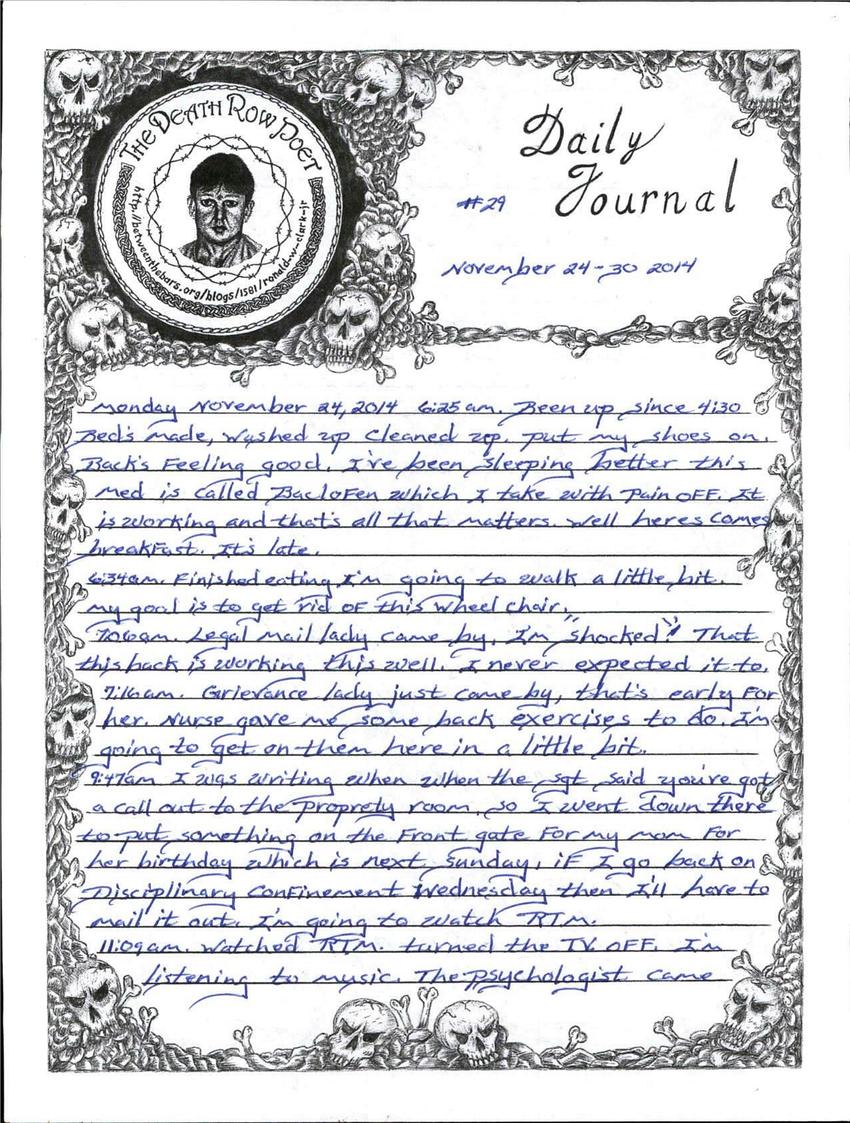 THE DEATH ROW POET
http://betweenthebars.org/blogs/1581/ronald-w-clark-jr
Daily
Journal
#29
November 24-30 2014
Monday November 24, 2014 6:25 am. Been up since 4:30
Bed's made, washed up cleaned up. put my shoes on.
Back's Feeling good. I've been sleeping better this
med is called BacloFen which I take with Pain OFF. It
is working and that's all that matters. Well heres comes
breakFast. It's late.
6:34am. Finished eating I'm going to walk a little bit.
my goal is to get rid of this wheel chair.
7:06am. Legal mail lady came by. I'm "shocked"! That
this back is working this well. I never expected it to.
7:16am. Grievance lady just came by, that's early For
her. Nurse gave me some back exercises to do. I'm
going to get on them here in a little bit.
9:47am I was writing when when the sgt said you've got
a call out to the proprety room, so I went down there
to put something on the Front gate For my mom For
her birthday which is next Sunday, iF I go back on
Disciplinary ConFinement Wednesday then I'll have to
mail it out. I'm going to watch RTM.
11:09am. Watched RTM. turned the TV. OFF. I'm
listening to music. The psychologist came